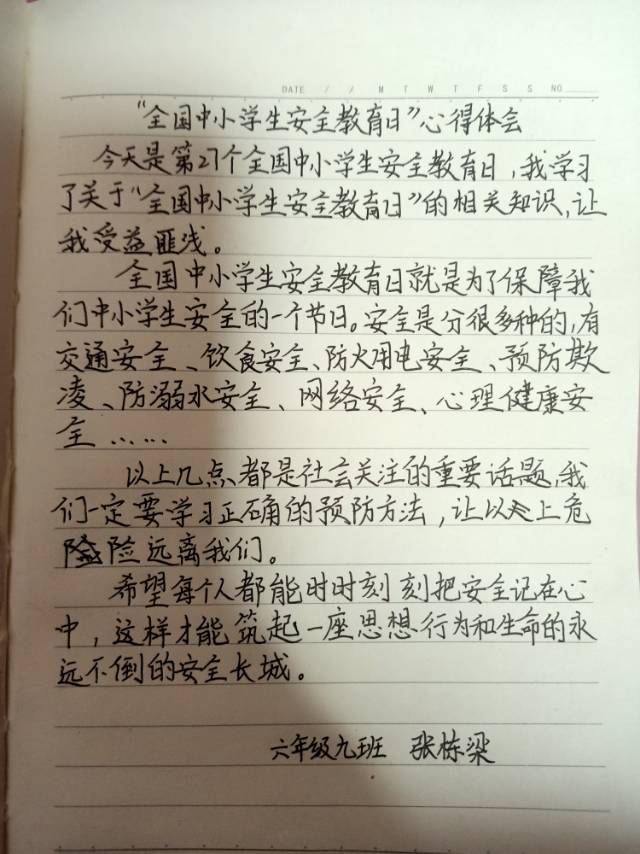 DATE / / M T W T F S S NO
“全国中小学生安全教育日”心得体会
今天是第27个全国中小学生安全教育日,我学习
了关于“全国中小学生安全教育日”的相关知识,让
我受益匪浅。
全国中小学生安全教育日就是为了保障我
们中小学生安全的一个节日。安全是分很多种的,有
交通安全、饮食安全、防火用电安全、预防欺
凌、防溺水安全、网络安全、心理健康安
全……
以上几点都是社会关注的重要话题,我
们一定要学习正确的预防方法,让以上危
险远离我们。
希望每个人都能时时刻刻把安全记在心
中,这样才能筑起一座思想行为和生命的永
远不倒的安全长城。
六年级九班 张栋梁